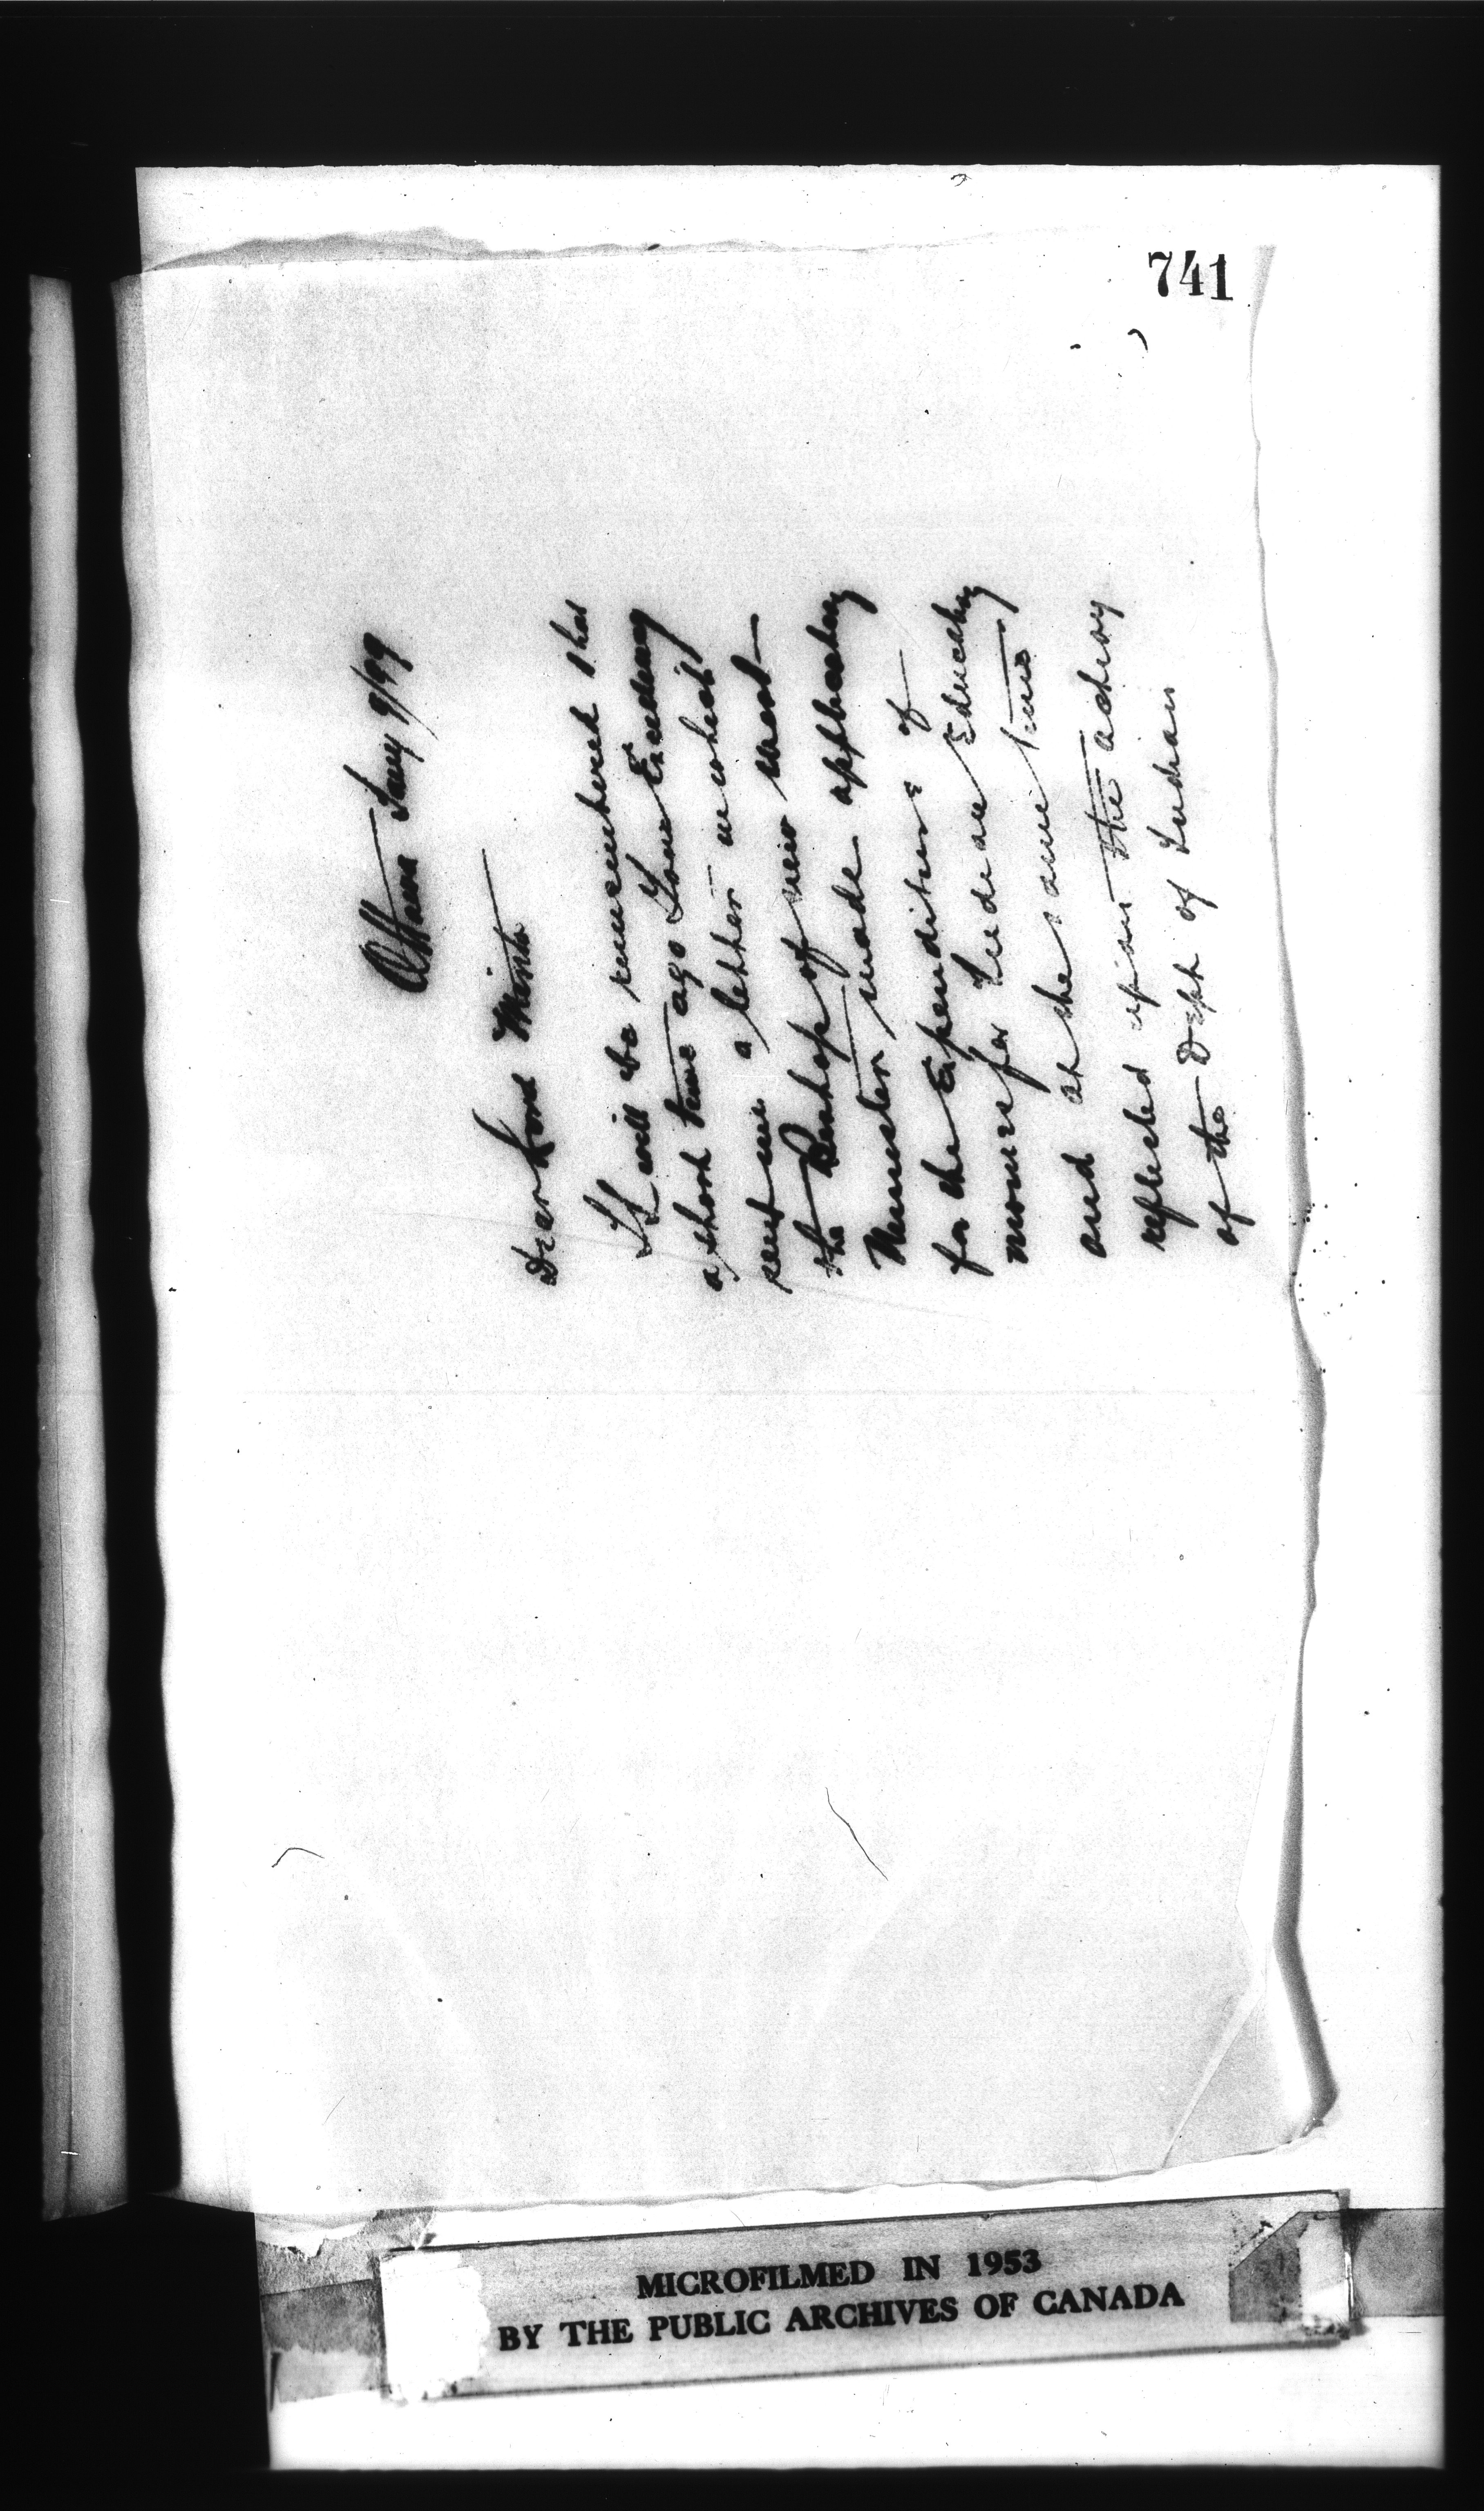 741
Ottawa Jany 9/99
Dear Lord Minto
It will be remembered that
a short time ago Your Excellency
sent me a letter in which
the Bishop of New West-
Minster made application
for the Expenditure of
moneys for Indian Education
and at the same time
reflected upon the action
of the Dept of Indian
MICROFILMED IN 1953
BY THE PUBLIC ARCHIVES OF CANADA